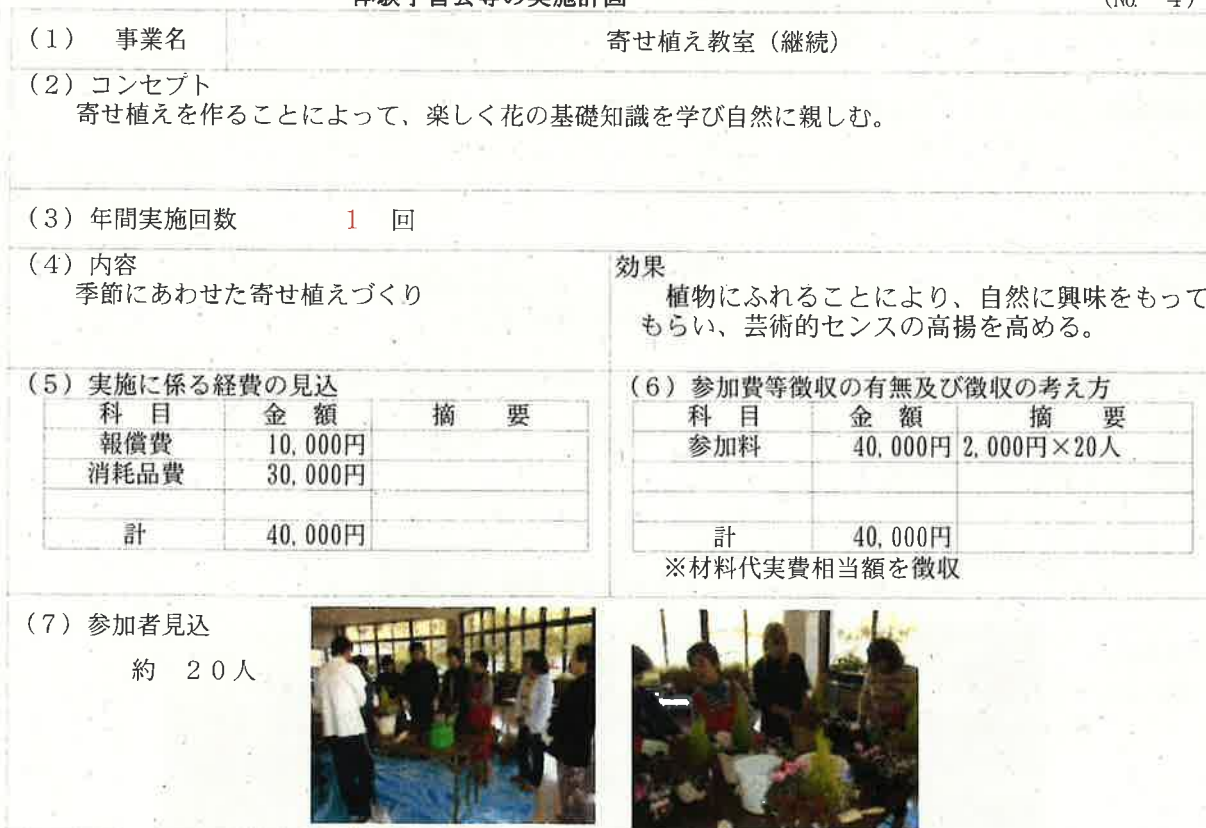 体験学習会等の実施計画 (No. 4)
(1) 事業名 寄せ植え教室（継続）
(2) コンセプト
寄せ植えを作ることによって、楽しく花の基礎知識を学び自然に親しむ。
(3) 年間実施回数 1 回
(4) 内容
季節にあわせた寄せ植えづくり
効果
植物にふれることにより、自然に興味をもって
もらい、芸術的センスの高揚を高める。
(5) 実施に係る経費の見込
科 目 金 額 摘 要
報償費 10,000円
消耗品費 30,000円
計 40,000円
(6) 参加費等徴収の有無及び徴収の考え方
科 目 金 額 摘 要
参加料 40,000円 2,000円×20人
計 40,000円
※材料代実費相当額を徴収
(7) 参加者見込
約 20人